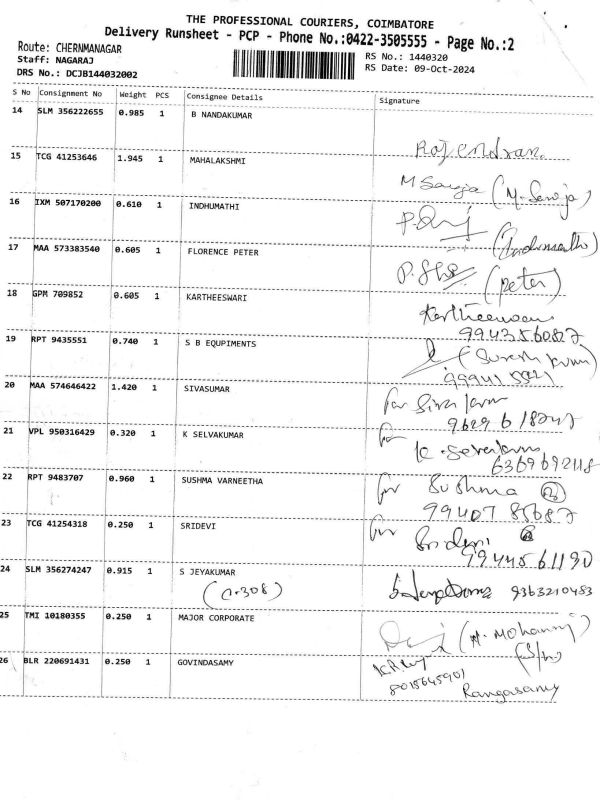 THE PROFESSIONAL COURIERS, COIMBATORE
Delivery Runsheet - PCP - Phone No.:0422-3505555 - Page No.:2
Route: CHERNMANAGAR
Staff: NAGARAJ
DRS No.: DCJB144032002
RS No.: 1440320
RS Date: 09-Oct-2024
S No Consignment No Weight PCS Consignee Details Signature
14 SLM 356222655 0.985 1 B NANDAKUMAR Rajendran.
15 TCG 41253646 1.945 1 MAHALAKSHMI
16 IXM 507170200 0.610 1 INDHUMATHI
17 MAA 573383540 0.605 1 FLORENCE PETER (peter)
18 GPM 709852 0.605 1 KARTHEESWARI
19 RPT 9435551 0.740 1 S B EQUPIMENTS
20 MAA 574646422 1.420 1 SIVASUMAR for
21 VPL 950316429 0.320 1 K SELVAKUMAR for
6369692118
22 RPT 9483707 0.960 1 SUSHMA VARNEETHA for Sushma
23 TCG 41254318 0.250 1 SRIDEVI for Sridevi
9944561190
24 SLM 356274247 0.915 1 S JEYAKUMAR 9363210483
25 TMI 10180355 0.250 1 MAJOR CORPORATE
26 BLR 220691431 0.250 1 GOVINDASAMY
8015645901
Rangasamy